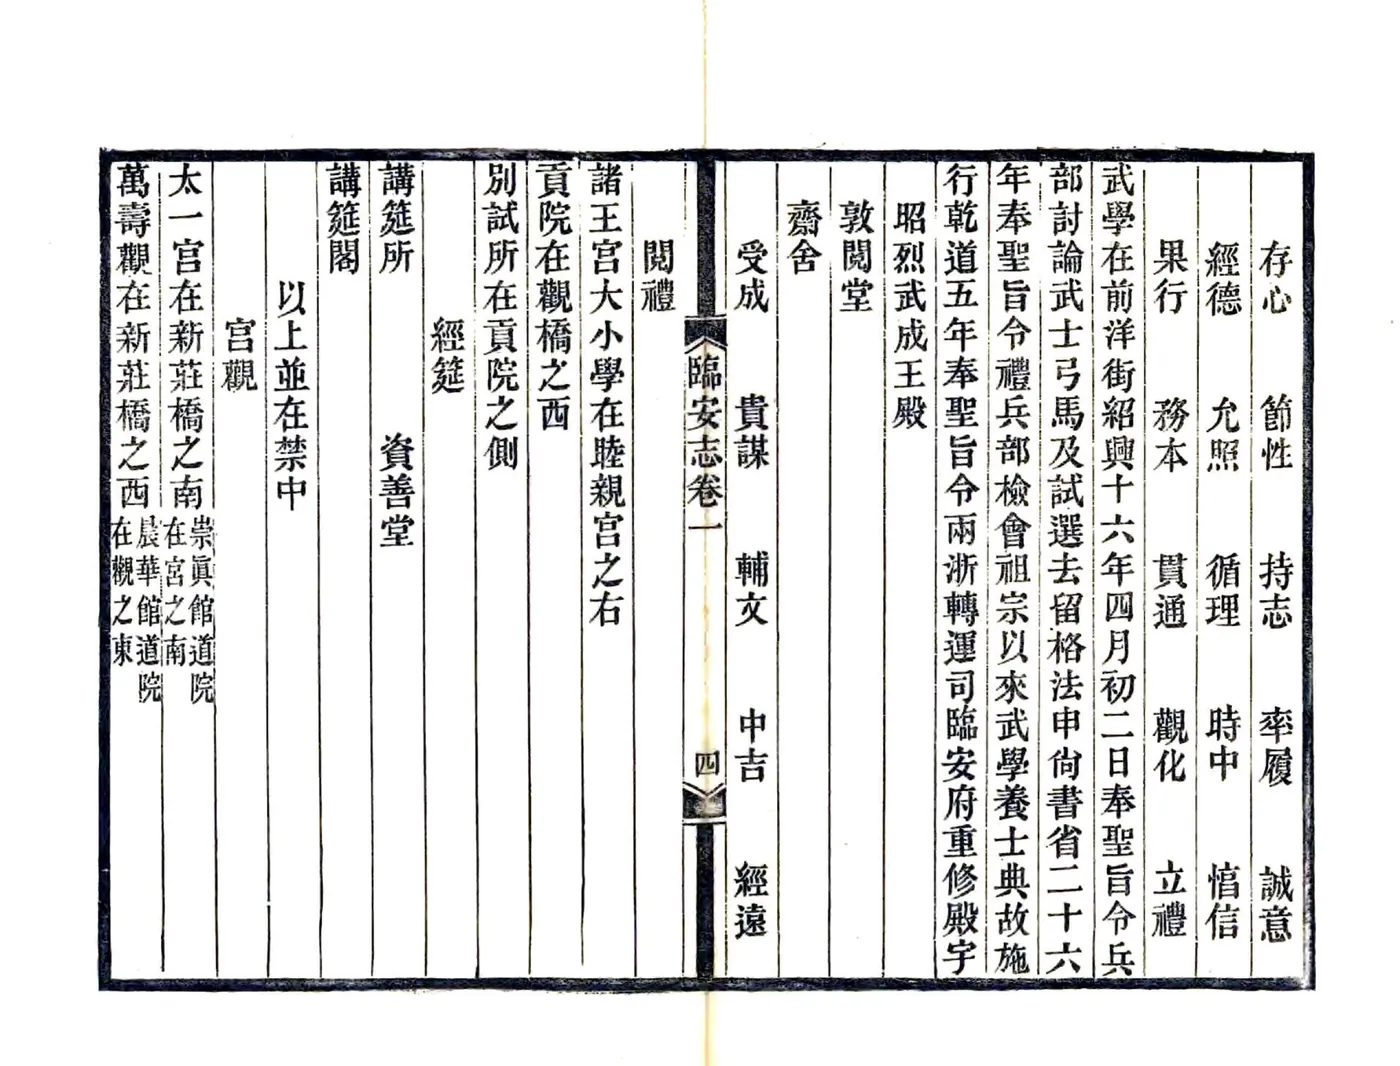 存心 節性 持志 率履 誠意
經德 允照 循理 時中 慥信
果行 務本 貫通 觀化 立禮
武學在前洋街紹興十六年四月初二日奉聖旨令兵
部討論武士弓馬及試選去留格法申尙書省二十六
年奉聖旨令禮兵部檢會祖宗以來武學養士典故施
行乾道五年奉聖旨令兩浙轉運司臨安府重修殿宇
昭烈武成王殿
敦閱堂
齋舍
受成 貴謀 輔文 中吉 經遠
臨安志卷一 四
閱禮
諸王宮大小學在睦親宮之右
貢院在觀橋之西
別試所在貢院之側
經筵
講筵所 資善堂
講筵閣
以上並在禁中
宮觀
太一宮在新莊橋之南崇眞館道院在宮之南
萬壽觀在新莊橋之西晨華館道院在觀之東